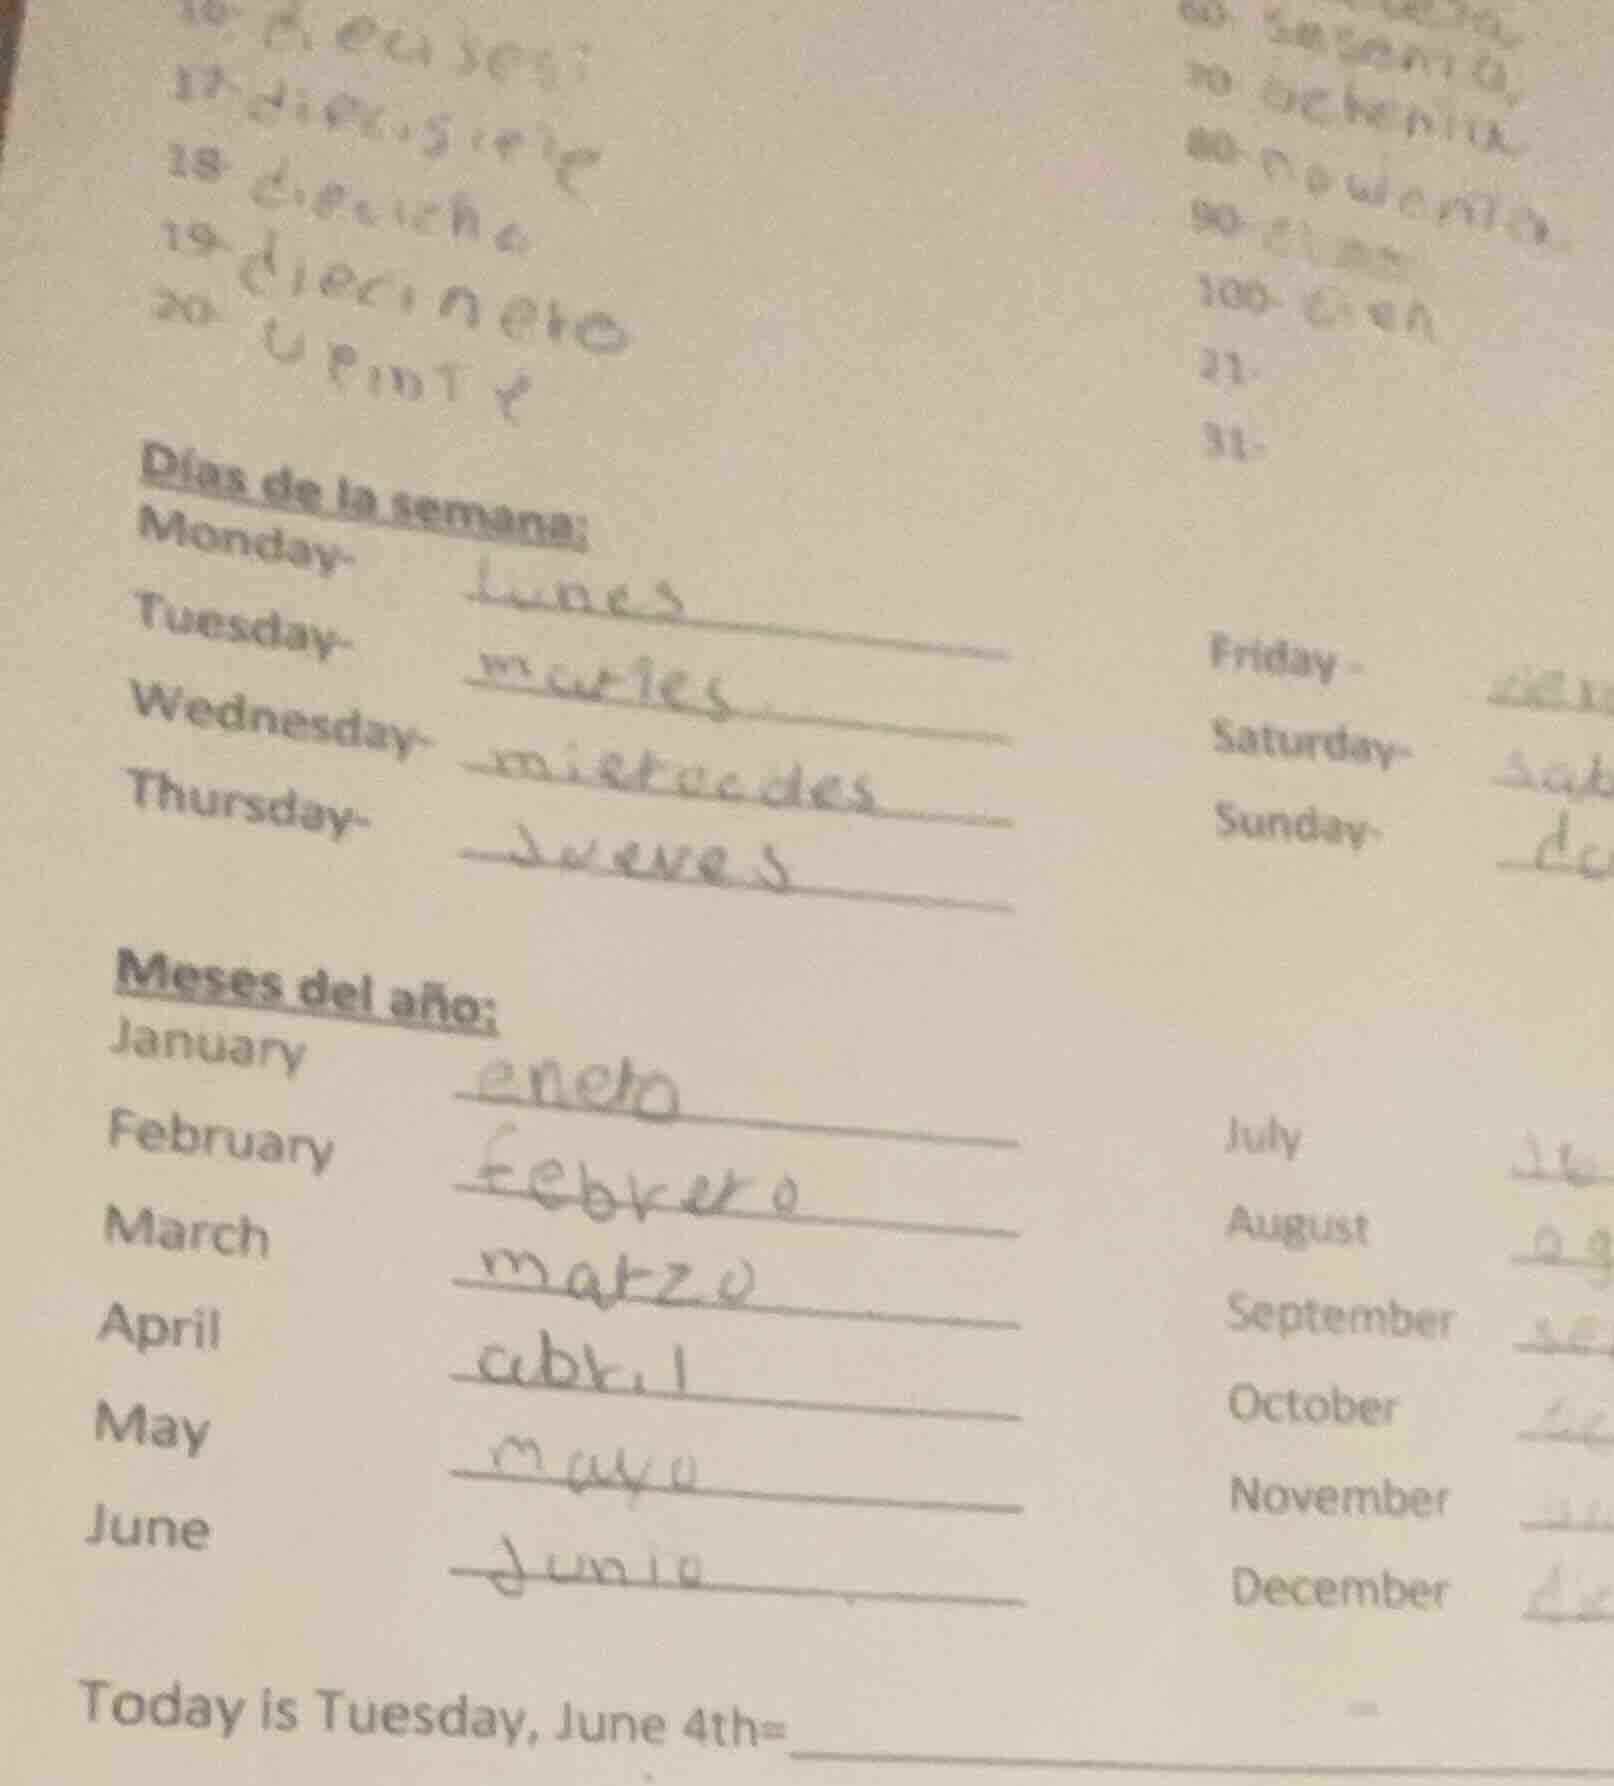 17- diecisiete
18- diecicho
19- diecinero
20- veinte
60- sesenta
70- ochenta
80- nowenta
90-
100- cien
21-
31-
Días de la semana:
Monday- lunes
Tuesday- martes
Wednesday- mierocdes
Thursday- Jueves
Friday -
Saturday- sab
Sunday- do
Meses del año:
January enero
February febrero
March marzo
April abril
May mayo
June Junio
July Ju
August ag
September se
October oc
November
December di
Today is Tuesday, June 4th=